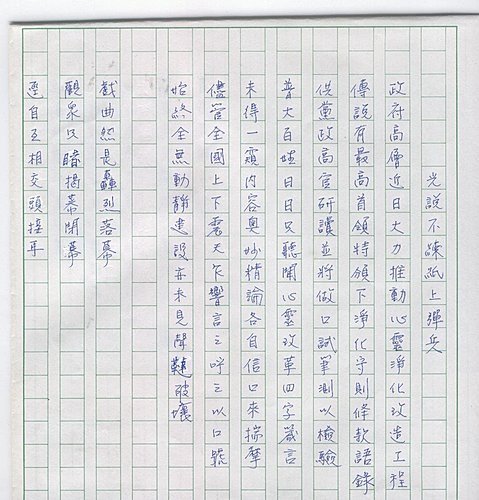 光說不練紙上彈兵
政府高層近日大力推動心靈淨化改造工程
傳說有最高首領特頒下淨化守則條款語錄
供黨政高官研讀並將做口試筆測以檢驗
普大百姓日日只聽聞心靈改革四字箴言
未得一窺內容奧妙精論各自信口來揣摩
儘管全國上下震天乍響言之哼之以口號
始終全無動靜建設亦未見聲韃破壞
戲曲怨是轟烈落幕
觀眾只瞎揭幕閉幕
逕自互相交頭接耳